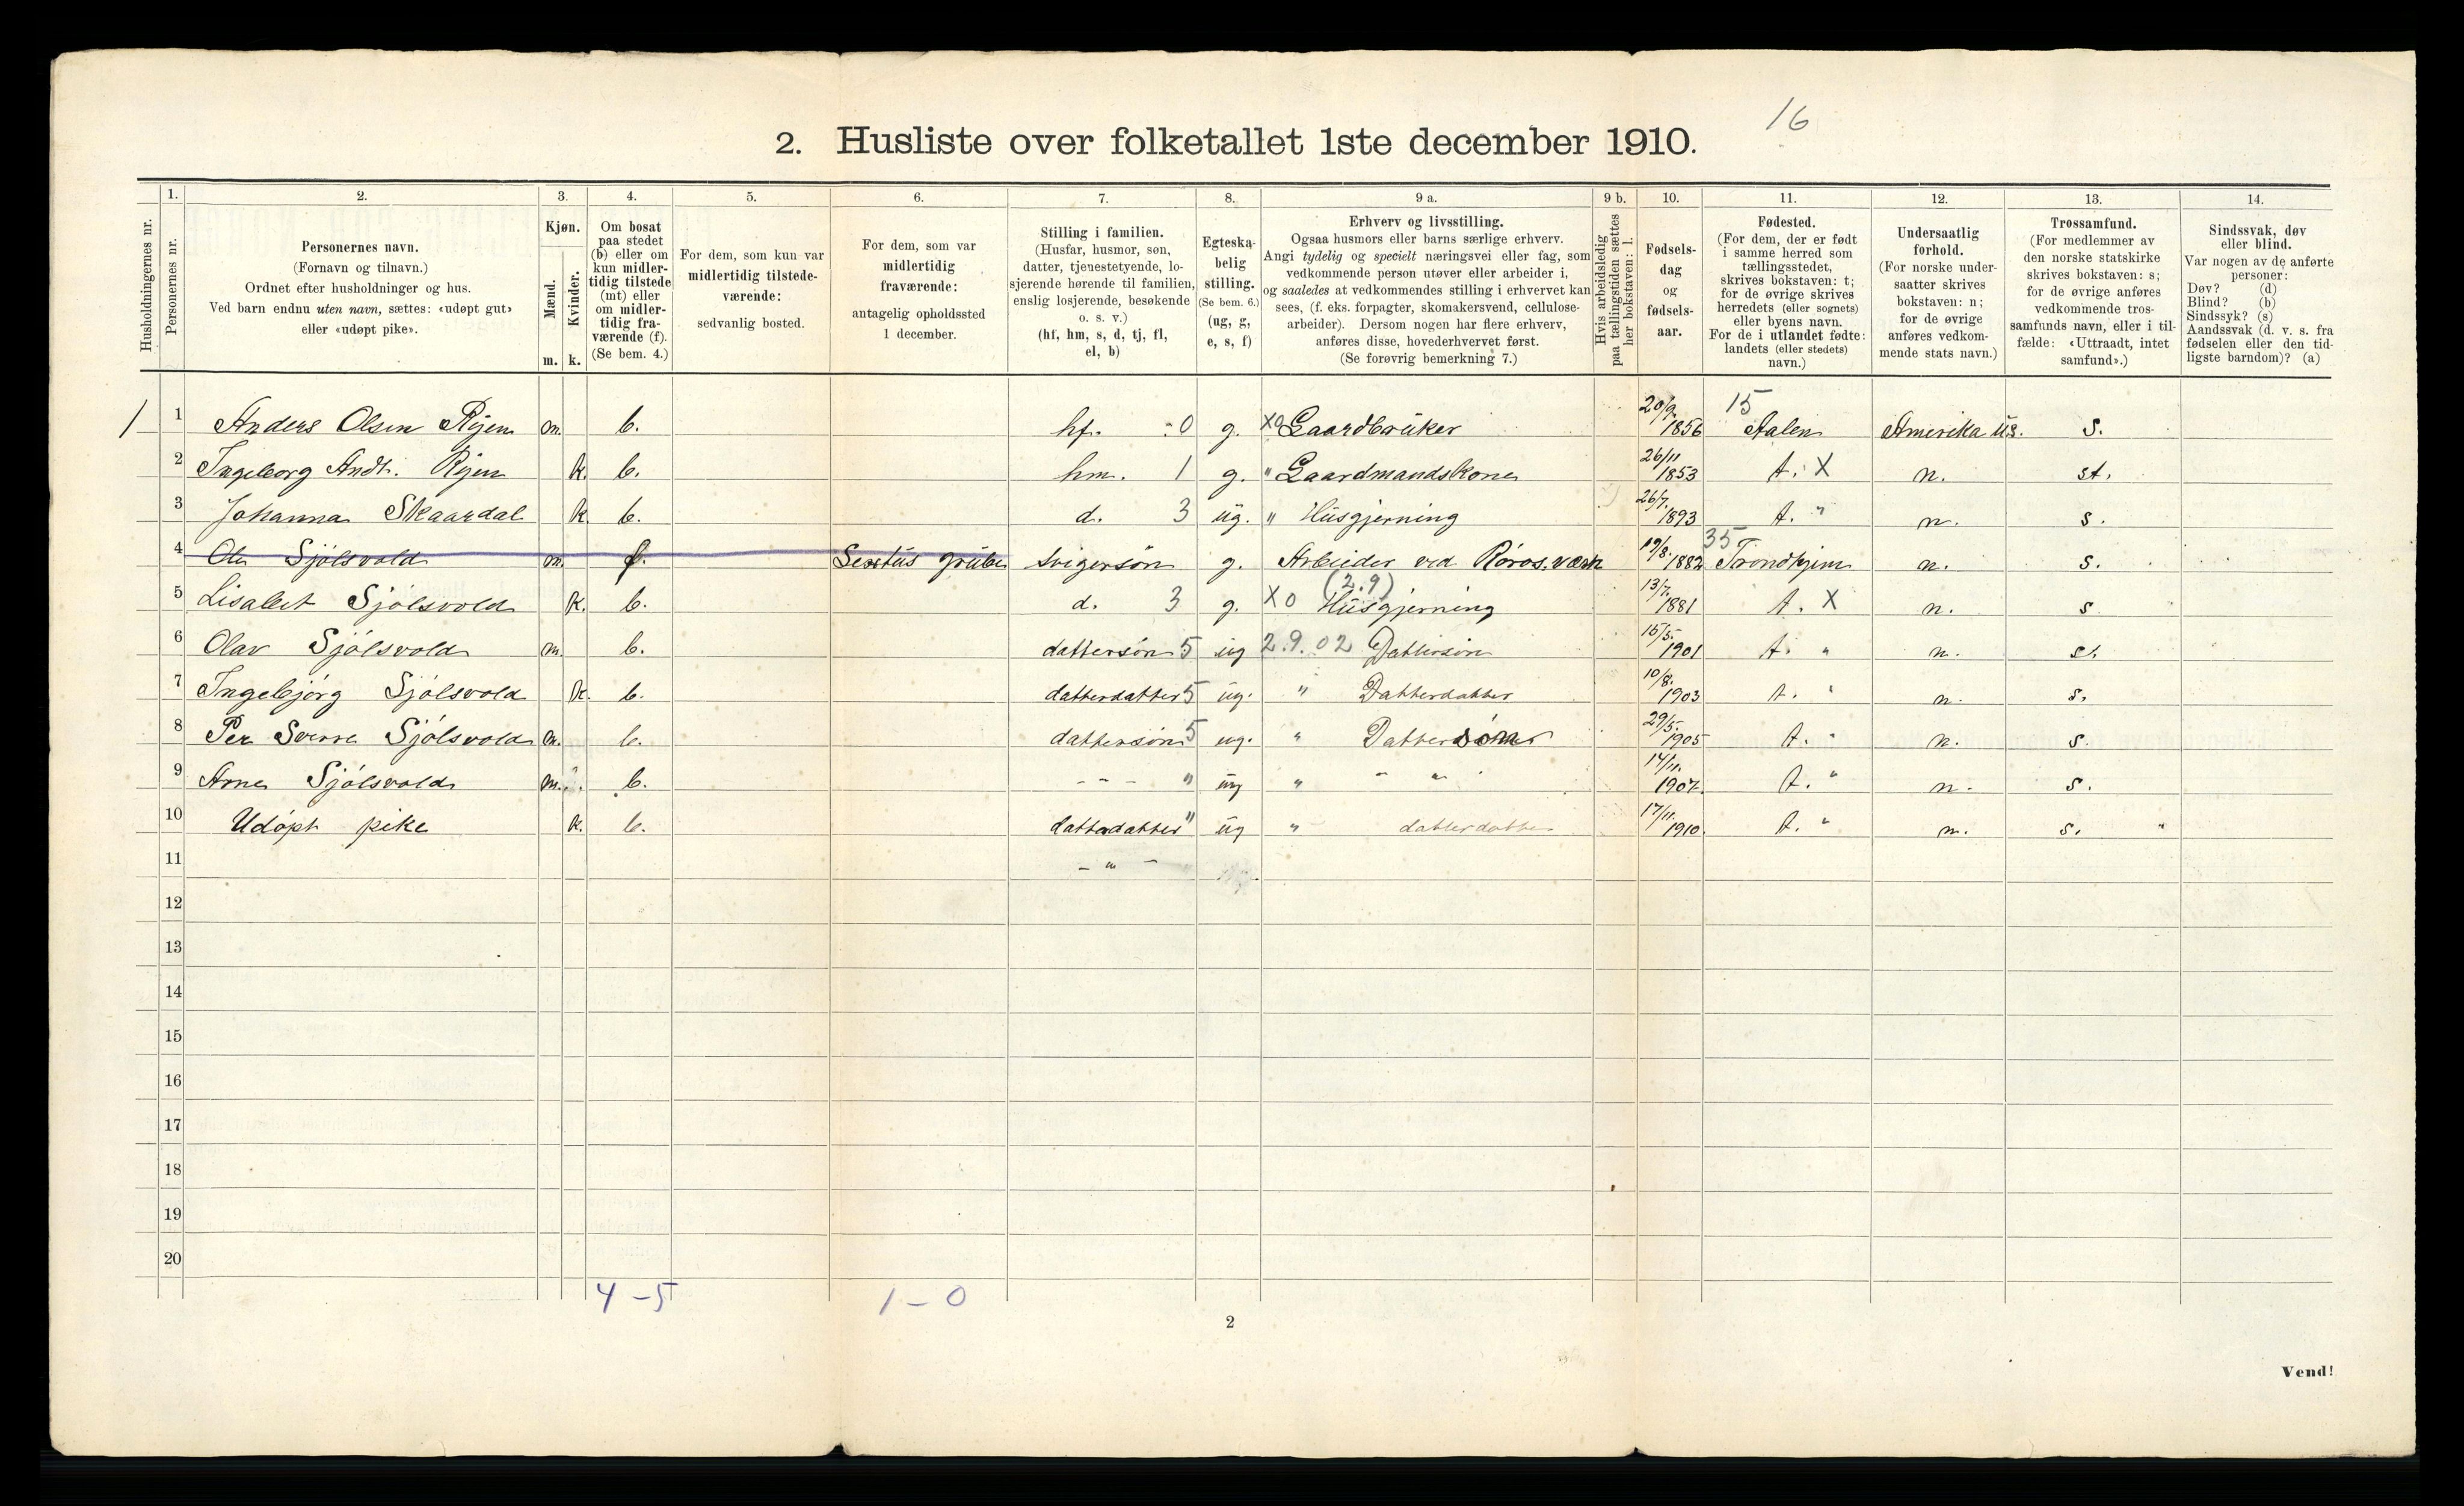 16
2. Husliste over folketallet 1ste december 1910.
Husholdningernes nr.
1.
Personernes nr.
2.
Personernes navn.
(Fornavn og tilnavn.)
Ordnet efter husholdninger og hus.
Ved barn endnu uten navn, sættes: «udøpt gut»
eller «udøpt pike».
3.
Kjøn.
Mænd.
Kvinder.
m. k.
4.
Om bosat
paa stedet
(b) eller om
kun midler-
tidig tilstede
(mt) eller
om midler-
tidig fra-
værende (f).
(Se bem. 4.)
5.
For dem, som kun var
midlertidig tilstede-
værende:
sedvanlig bosted.
6.
For dem, som var
midlertidig
fraværende:
antagelig opholdssted
1 december.
7.
Stilling i familien.
(Husfar, husmor, søn,
datter, tjenestetyende, lo-
sjerende hørende til familien,
enslig losjerende, besøkende
o. s. v.)
(hf, hm, s, d, tj, fl,
el, b)
8.
Egteska-
belig
stilling.
(Se bem. 6.)
(ug, g,
e, s, f)
9 a.
Erhverv og livsstilling.
Ogsaa husmors eller barns særlige erhverv.
Angi tydelig og specielt næringsvei eller fag, som
vedkommende person utøver eller arbeider i,
og saaledes at vedkommendes stilling i erhvervet kan
sees, (f. eks. forpagter, skomakersvend, cellulose-
arbeider). Dersom nogen har flere erhverv,
anføres disse, hovederhvervet først.
(Se forøvrig bemerkning 7.)
9 b.
Hvis arbeidsledig
paa tællingstiden sættes
her bokstaven: l.
10.
Fødsels-
dag
og
fødsels-
aar.
11.
Fødested.
(For dem, der er født
i samme herred som
tællingsstedet,
skrives bokstaven: t;
for de øvrige skrives
herredets (eller sognets)
eller byens navn.
For de i utlandet fødte:
landets (eller stedets)
navn.)
12.
Undersaatlig
forhold.
(For norske under-
saatter skrives
bokstaven: n;
for de øvrige
anføres vedkom-
mende stats navn.)
13.
Trossamfund.
(For medlemmer av
den norske statskirke
skrives bokstaven: s;
for de øvrige anføres
vedkommende tros-
samfunds navn, eller i til-
fælde: «Uttraadt, intet
samfund».)
14.
Sindssvak, døv
eller blind.
Var nogen av de anførte
personer:
Døv? (d)
Blind? (b)
Sindssyk? (s)
Aandssvak (d. v. s. fra
fødselen eller den tid-
ligste barndom)? (a)
1 1 Anders Olsen Ryen m. b. hf. 0 g. X0 Gaardbrüker 20/9. 1856 15 Aalen Amerika U.S. s.
2 Ingeborg Andt. Ryen k. b. hm. 1 g. " Gaardmandskone 26/11 1853 t. X n. st.
3 Johanna Skaardal k. b. d. 3 üg. " Hüsgjerning 26/7. 1893 t. " n. s.
4 Ole Sjölsvold m. f. Sextüs grübe svigersön g. Arbeider ved Röros. værk 19/8. 1882 35 Trondhjem n. s.
5 Lisabet Sjölsvold k. b. d. 3 g. X0 (2.9) Hüsgjerning 13/7. 1881 t. X n. s
6 Olav Sjölsvold m. b. dattersön 5 üg 2.9.02 Dattersön 15/5. 1901 t. " n. s.
7 Ingebjörg Sjölsvold k. b. datterdatter 5 üg. " Datterdatter 10/8. 1903 t. " n. s.
8 Per Sverre Sjölsvold m. b. dattersön 5 ug. " Dattersön 29/5. 1905 t. " n. s.
9 Arne Sjölsvold m. b. - - - " üg " " " 14/11. 1907. t. " n. s.
10 Udöpt pike k. b. datterdatter " üg " datterdatter 17/11. 1910. t. " n. s. "
11 - " -
12
13
14
15
16
17
18
19
20
4 - 5 1 - 0
2
Vend!